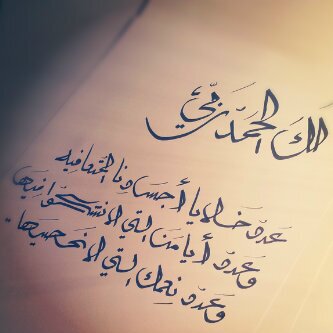 لكَ الحَمدُ ربّي
عَددَ خَلايا أجسَادِنا المُتعافيه
وَعَددَ أيامَنا التي لا نَشكو فيها
وَعَددَ نِعمك التي لا نُحصيها..